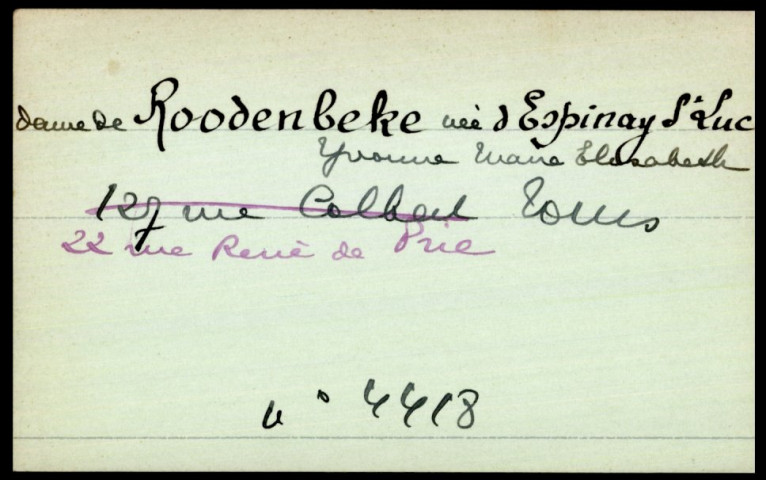 dame de Roodenbeke née d'Espinay St Luc
Yvonne Marie Elisabeth
127 rue Colbert Tours
22 rue René de Prie
n° 4418